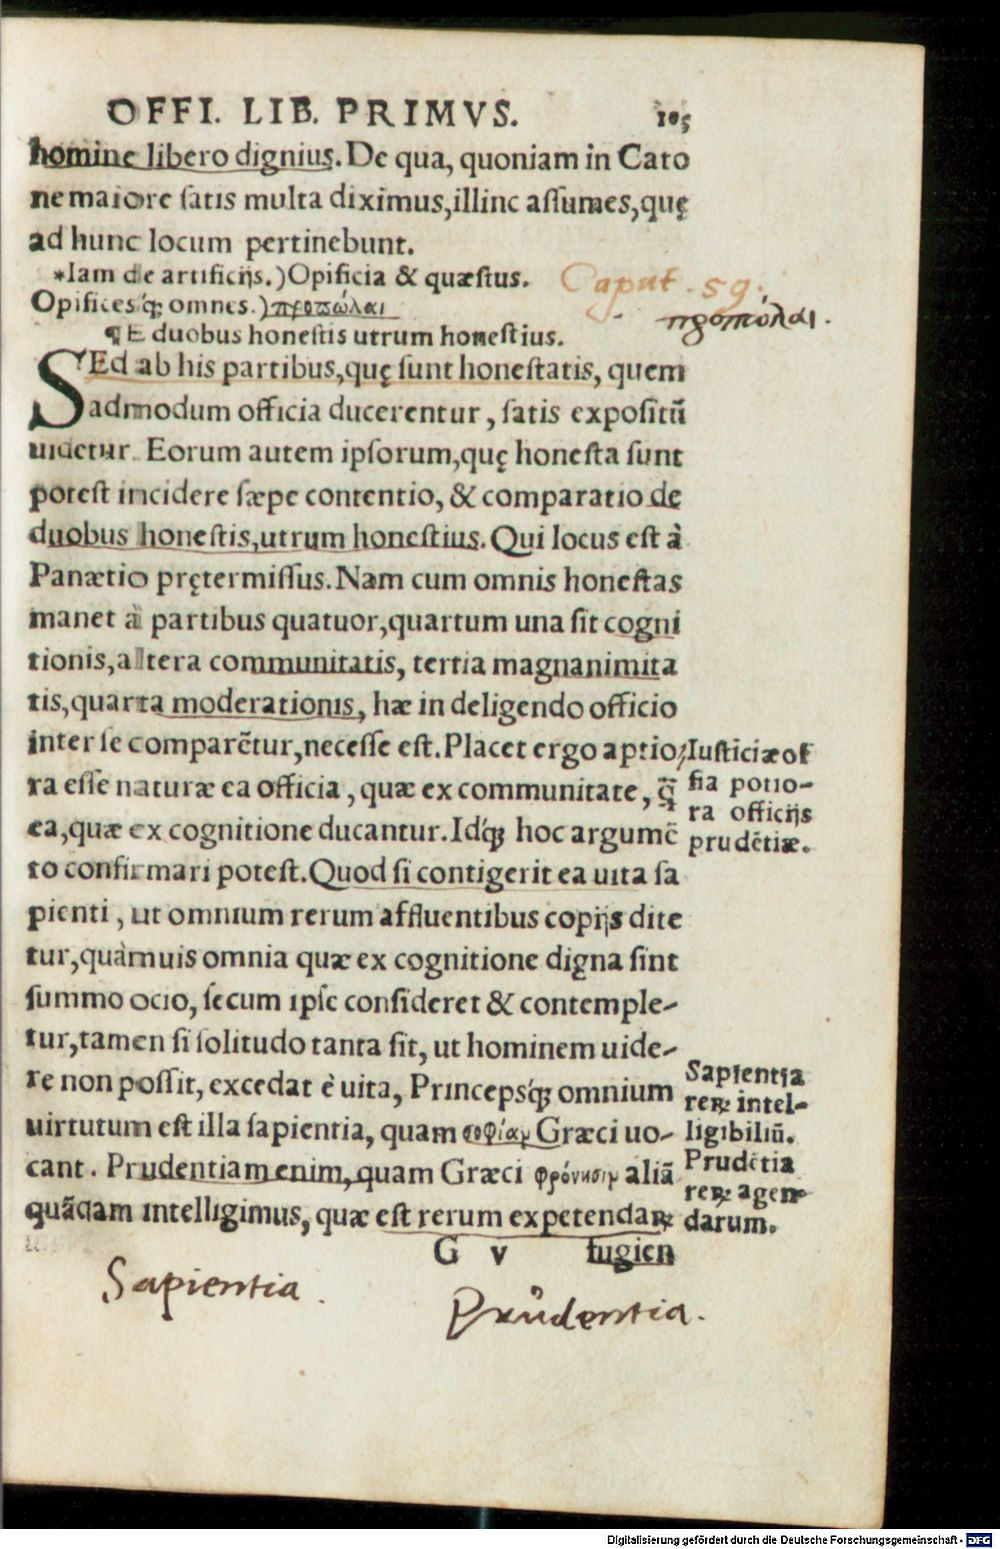 OFFI. LIB. PRIMVS. 105
homine libero dignius. De qua, quoniam in Cato
ne maiore satis multa diximus, illinc assumes, quę
ad hunc locum pertinebunt.
*Iam de artificijs.) Opificia & quæstus.
Caput. 59.
Opificesq́; omnes.) προπώλαι
προπώλαι.
¶ E duobus honestis utrum honestius.
SEd ab his partibus, quę sunt honestatis, quem
admodum officia ducerentur, satis expositū
uidetur. Eorum autem ipsorum, quę honesta sunt
potest incidere sæpe contentio, & comparatio de
duobus honestis, utrum honestius. Qui locus est à
Panætio prętermissus. Nam cum omnis honestas
manet à partibus quatuor, quartum una sit cogni
tionis, altera communitatis, tertia magnanimita
tis, quarta moderationis, hæ in deligendo officio
inter se comparētur, necesse est. Placet ergo aptio
ra esse naturæ ea officia, quæ ex communitate, q̄
ea, quæ ex cognitione ducantur. Idq́; hoc argumē
to confirmari potest. Quod si contigerit ea uita sa
pienti, ut omnium rerum affluentibus copijs dite
tur, quàmuis omnia quæ ex cognitione digna sint
summo ocio, secum ipse consideret & contemple-
tur, tamen si solitudo tanta sit, ut hominem uide-
re non possit, excedat è uita, Princepsq́; omnium
uirtutum est illa sapientia, quam σοφίαν Græci uo-
cant. Prudentiam enim, quam Græci φρόνησιν aliā
quādam intelligimus, quæ est rerum expetendaꝝ
G v fugien
Iusticiæ of
fia potio-
ra officijs
prudētiæ.
Sapientia
reꝝ intel-
ligibiliū.
Prudētia
reꝝ agen-
darum.
Sapientia.
Prudentia.
Digitalisierung gefördert durch die Deutsche Forschungsgemeinschaft - DFG